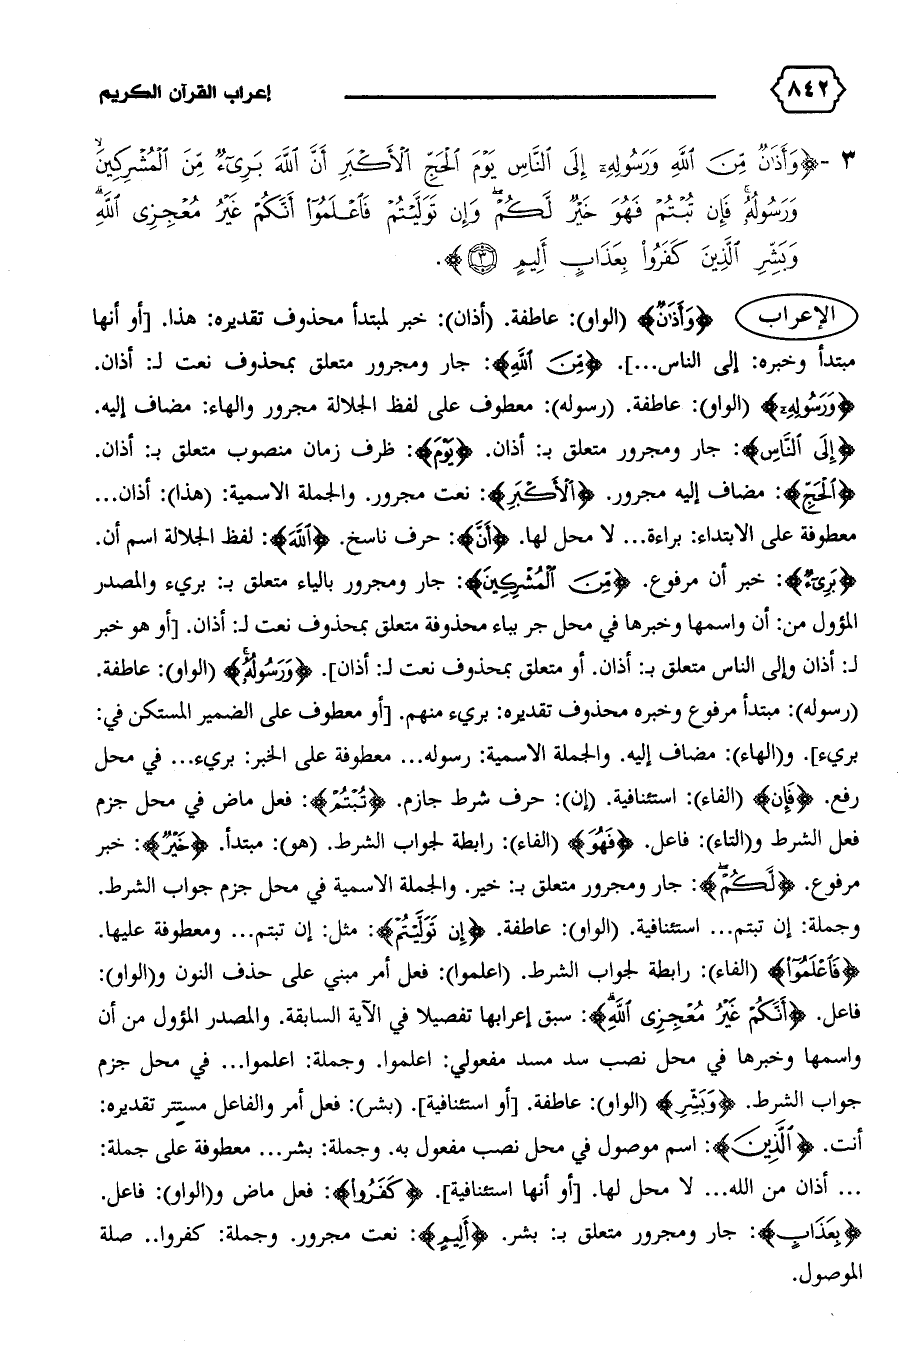 ٨٤٢ إعراب القرآن الكريم
٣ - ﴿وَأَذَٰنٌ مِّنَ ٱللَّهِ وَرَسُولِهِۦٓ إِلَى ٱلنَّاسِ يَوْمَ ٱلْحَجِّ ٱلْأَكْبَرِ أَنَّ ٱللَّهَ بَرِىٓءٌ مِّنَ ٱلْمُشْرِكِينَ ۙ
وَرَسُولُهُۥ ۚ فَإِن تُبْتُمْ فَهُوَ خَيْرٌ لَّكُمْ ۖ وَإِن تَوَلَّيْتُمْ فَٱعْلَمُوٓا۟ أَنَّكُمْ غَيْرُ مُعْجِزِى ٱللَّهِ ۗ
وَبَشِّرِ ٱلَّذِينَ كَفَرُوا۟ بِعَذَابٍ أَلِيمٍ ٣﴾.
الإعراب ﴿وَأَذَٰنٌ﴾ (الواو): عاطفة. (أذان): خبر لمبتدأ محذوف تقديره: هذا. [أو أنها
مبتدأ وخبره: إلى الناس...]. ﴿مِّنَ ٱللَّهِ﴾: جار ومجرور متعلق بمحذوف نعت لـ: أذان.
﴿وَرَسُولِهِۦٓ﴾ (الواو): عاطفة. (رسوله): معطوف على لفظ الجلالة مجرور والهاء: مضاف إليه.
﴿إِلَى ٱلنَّاسِ﴾: جار ومجرور متعلق بـ: أذان. ﴿يَوْمَ﴾: ظرف زمان منصوب متعلق بـ: أذان.
﴿ٱلْحَجِّ﴾: مضاف إليه مجرور. ﴿ٱلْأَكْبَرِ﴾: نعت مجرور. والجملة الاسمية: (هذا): أذان...
معطوفة على الابتداء: براءة... لا محل لها. ﴿أَنَّ﴾: حرف ناسخ. ﴿ٱللَّهَ﴾: لفظ الجلالة اسم أن.
﴿بَرِىٓءٌ﴾: خبر أن مرفوع. ﴿مِّنَ ٱلْمُشْرِكِينَ﴾: جار ومجرور بالياء متعلق بـ: بريء والمصدر
المؤول من: أن واسمها وخبرها في محل جر بباء محذوفة متعلق بمحذوف نعت لـ: أذان. [أو هو خبر
لـ: أذان وإلى الناس متعلق بـ: أذان. أو متعلق بمحذوف نعت لـ: أذان]. ﴿وَرَسُولُهُۥ ۚ﴾ (الواو): عاطفة.
(رسوله): مبتدأ مرفوع وخبره محذوف تقديره: بريء منهم. [أو معطوف على الضمير المستكن في:
بريء]. و(الهاء): مضاف إليه. والجملة الاسمية: رسوله... معطوفة على الخبر: بريء... في محل
رفع. ﴿فَإِن﴾ (الفاء): استئنافية. (إن): حرف شرط جازم. ﴿تُبْتُمْ﴾: فعل ماض في محل جزم
فعل الشرط و(التاء): فاعل. ﴿فَهُوَ﴾ (الفاء): رابطة لجواب الشرط. (هو): مبتدأ. ﴿خَيْرٌ﴾: خبر
مرفوع. ﴿لَّكُمْ ۖ﴾: جار ومجرور متعلق بـ: خير. والجملة الاسمية في محل جزم جواب الشرط.
وجملة: إن تبتم... استئنافية. (الواو): عاطفة. ﴿إِن تَوَلَّيْتُمْ﴾: مثل: إن تبتم... ومعطوفة عليها.
﴿فَٱعْلَمُوٓا۟﴾ (الفاء): رابطة لجواب الشرط. (اعلموا): فعل أمر مبني على حذف النون و(الواو):
فاعل. ﴿أَنَّكُمْ غَيْرُ مُعْجِزِى ٱللَّهِ ۗ﴾: سبق إعرابها تفصيلا في الآية السابقة. والمصدر المؤول من أن
واسمها وخبرها في محل نصب سد مسد مفعولي: اعلموا. وجملة: اعلموا... في محل جزم
جواب الشرط. ﴿وَبَشِّرِ﴾ (الواو): عاطفة. [أو استئنافية]. (بشر): فعل أمر والفاعل مستتر تقديره:
أنت. ﴿ٱلَّذِينَ﴾: اسم موصول في محل نصب مفعول به. وجملة: بشر... معطوفة على جملة:
... أذان من الله... لا محل لها. [أو أنها استئنافية]. ﴿كَفَرُوا۟﴾: فعل ماض و(الواو): فاعل.
﴿بِعَذَابٍ﴾: جار ومجرور متعلق بـ: بشر. ﴿أَلِيمٍ﴾: نعت مجرور. وجملة: كفروا.. صلة
الموصول.